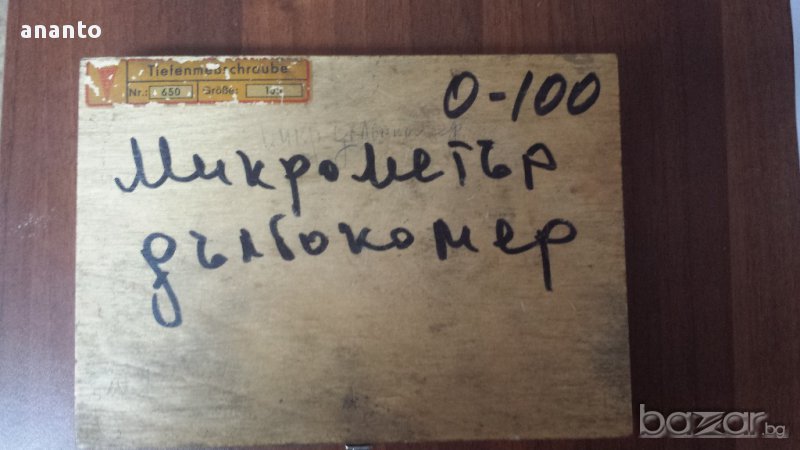 ananto
Tiefenmeßschraube
Nr.: 650 Größe:
0-100
Микрометър
дълбокомер
bazar.bg